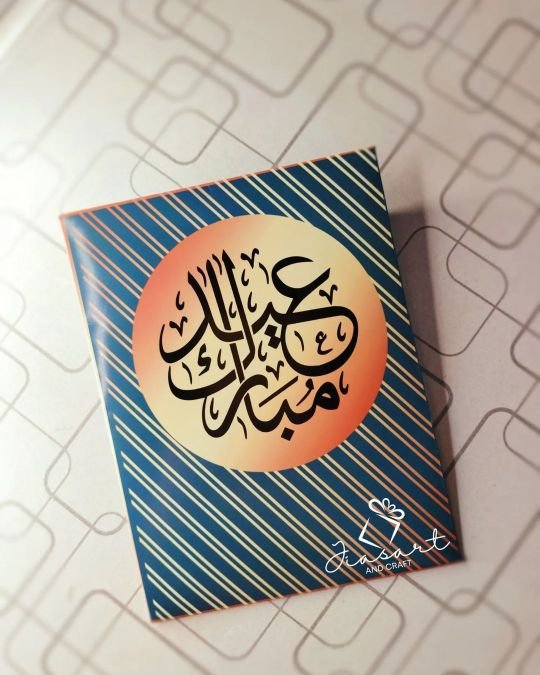 عيد
مُبارك
Jiasart
AND CRAFT